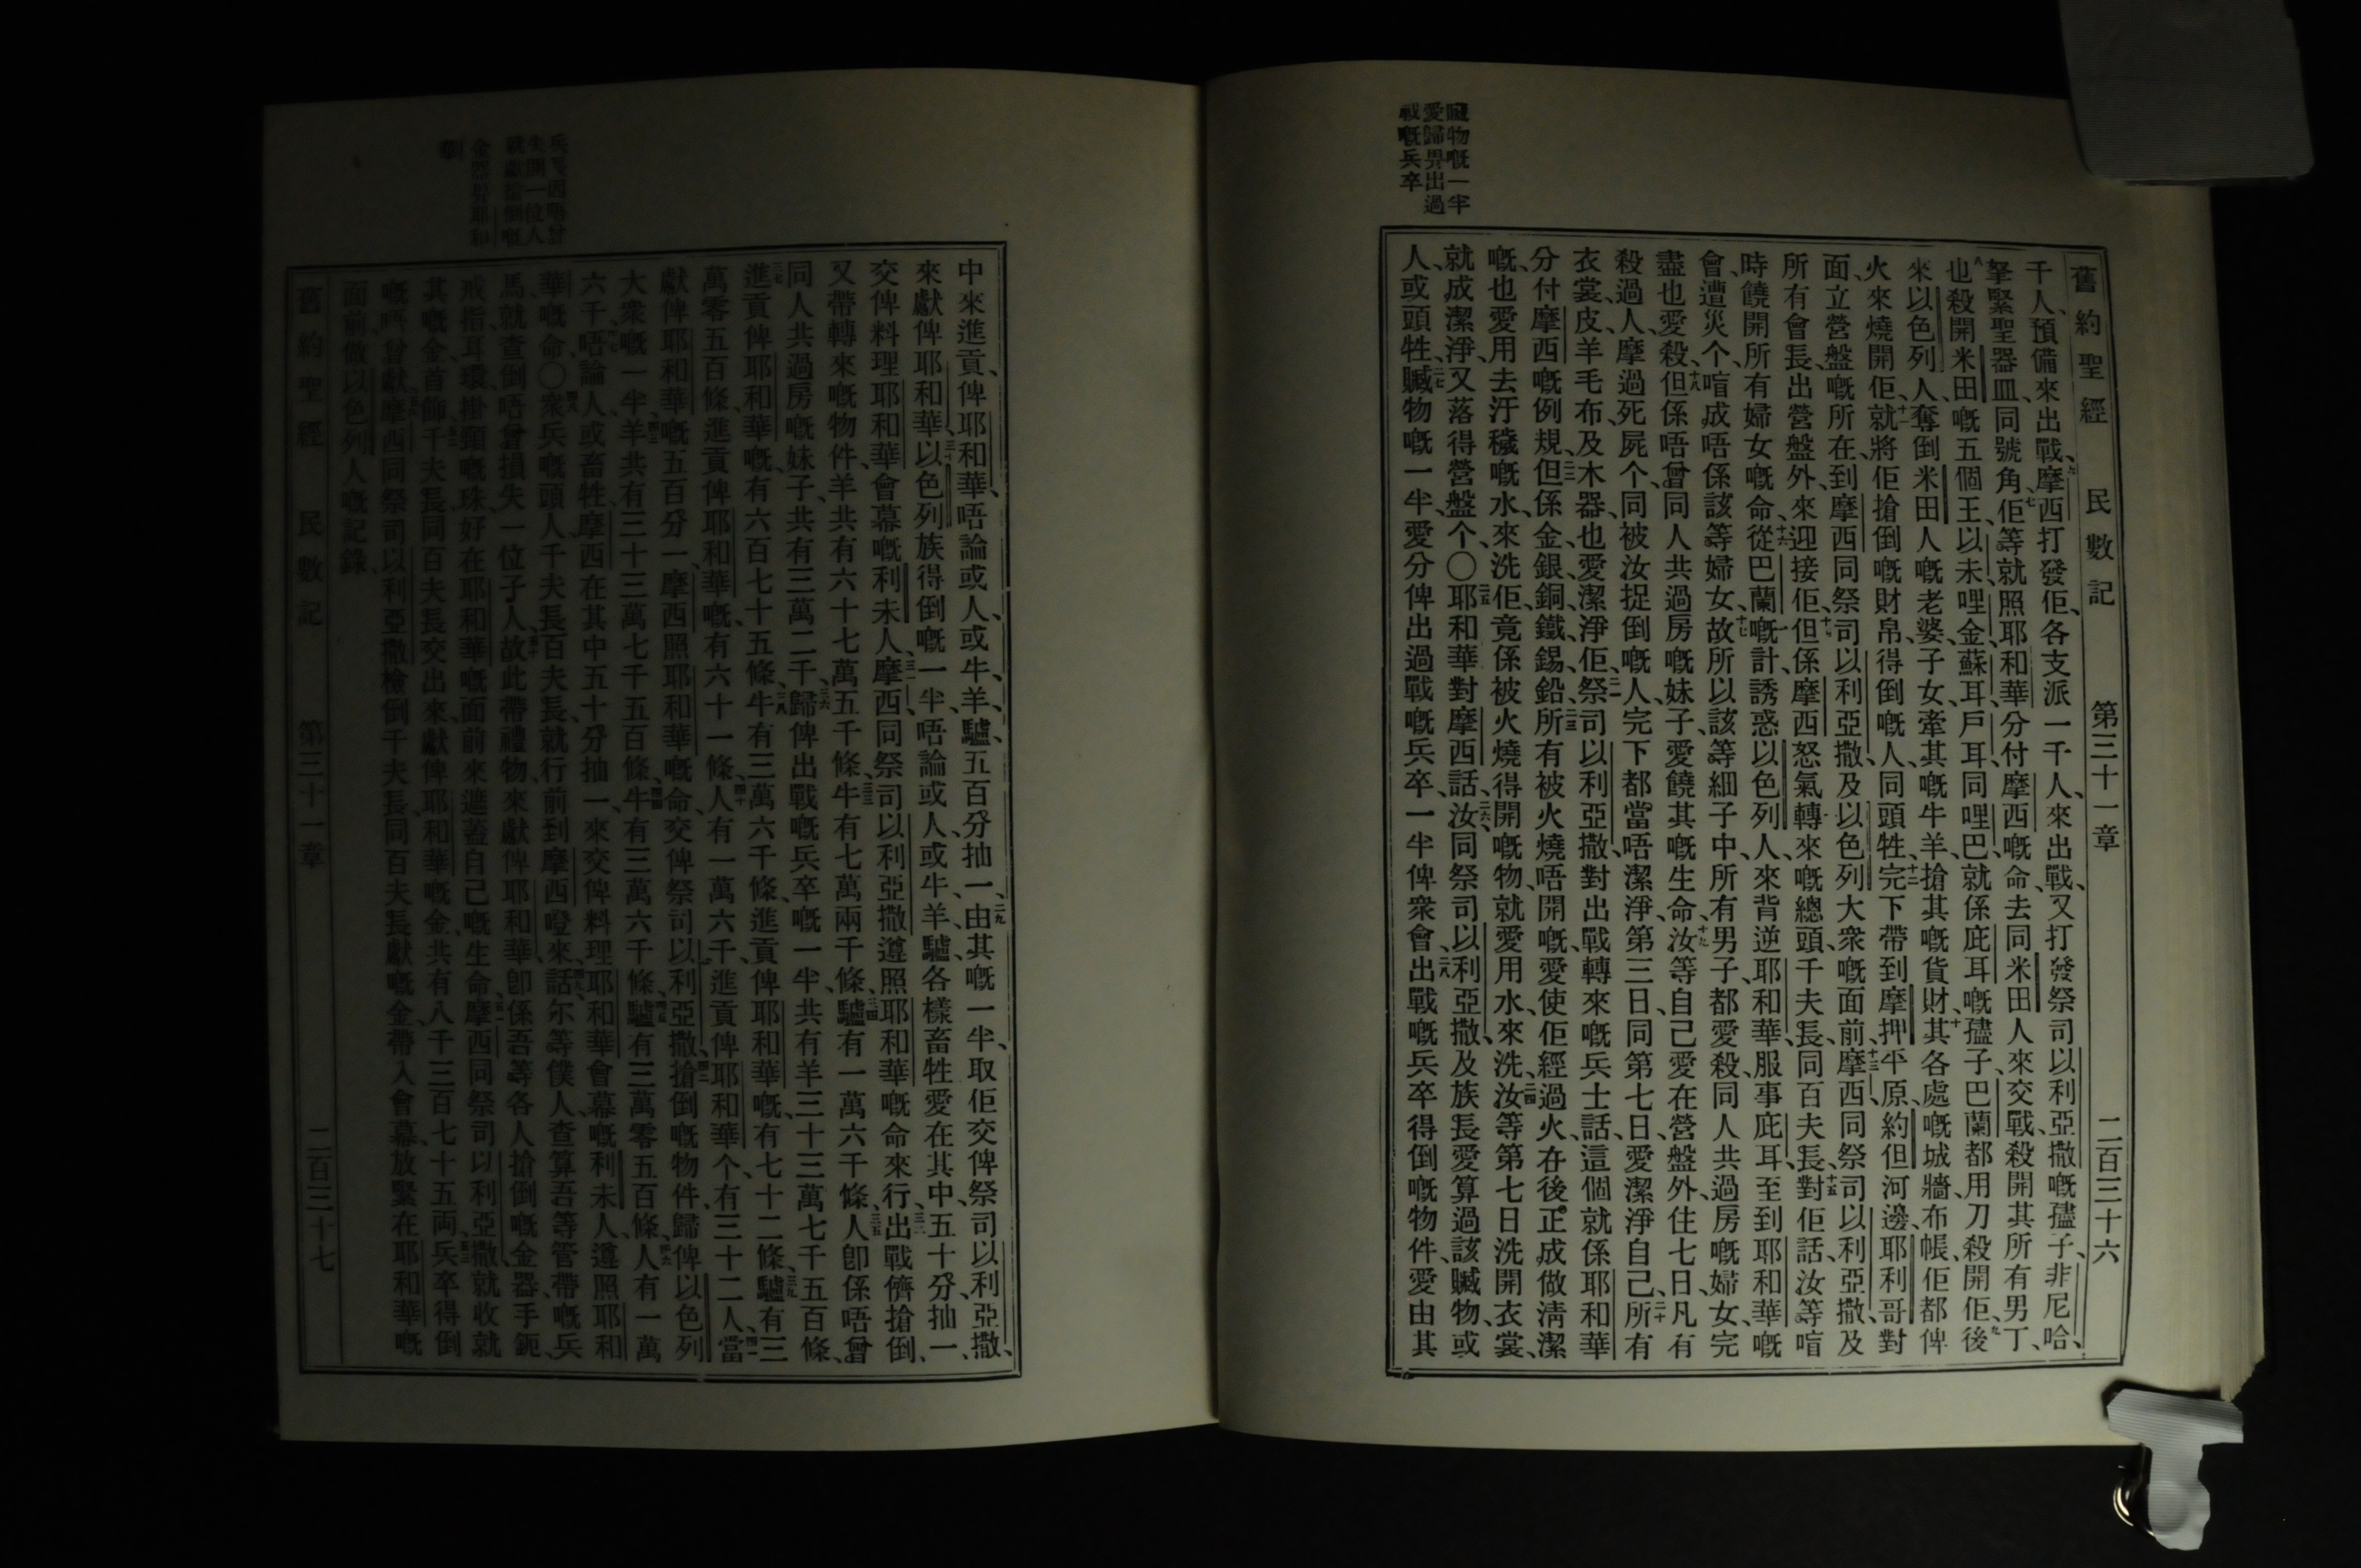 舊約聖經 民數記 第三十一章 二百三十六
贓物嘅一半
愛歸畀出過
戰嘅兵卒
千人、預備來出戰、六摩西打發佢、各支派一千人、來出戰、又打發祭司以利亞撒嘅孻子、非尼哈、
拏緊聖器皿、同號角、七佢等就照耶和華分付摩西嘅命、去同米田人來交戰、殺開其所有男丁、
八也殺開米田嘅五個王、以未哩金、蘇耳、戶耳、同哩巴、就係庇耳嘅孻子、巴蘭都用刀殺開佢、九後
來以色列人、奪倒米田人嘅老婆、子女、牽其嘅牛羊、搶其嘅貨財、十其各處嘅城牆、布帳、佢都俾
火來燒開佢、十一就將佢搶倒嘅財帛、得倒嘅人、同頭牲、十二完下帶到摩押平原、約但河邊、耶利哥對
面、立營盤嘅所在、到摩西同祭司以利亞撒、及以色列大衆嘅面前、十三摩西同祭司以利亞撒、及
所有會長、出營盤外、來迎接佢、十四但係摩西怒氣轉來嘅總頭、千夫長、同百夫長、十五對佢話、汝等喧
時饒開所有婦女嘅命、十六從巴蘭嘅計、誘惑以色列人、來背逆耶和華、服事庇耳、至到耶和華嘅
會、遭災个、喧成唔係該等婦女、十七故所以該等細子中、所有男子、都愛殺、同人共過房嘅婦女、完
盡也愛殺、十八但係唔曾同人共過房嘅妹子、愛饒其嘅生命、十九汝等自己愛在營盤外、住七日、凡有
殺過人、摩過死屍个、同被汝捉倒嘅人、完下都當唔潔淨、第三日、同第七日、愛潔淨自己、二十所有
衣裳、皮、羊毛布、及木器、也愛潔淨佢、二一祭司以利亞撒、對出戰轉來嘅兵士話、這個就係耶和華
分付摩西嘅例規、二二但係金、銀、銅、鐵、錫、鉛、二三所有被火燒唔開嘅、愛使佢經過火、在後正成做清潔
嘅、也愛用去汙穢嘅水、來洗佢、竟係被火燒得開嘅物、就愛用水、來洗、二四汝等第七日洗開衣裳、
就成潔淨、又落得營盤个、〇二五耶和華對摩西話、二六汝同祭司以利亞撒、及族長愛算過該贓物、或
人、或頭牲、二七贓物嘅一半、愛分俾出過戰嘅兵卒、一半俾衆會、二八出戰嘅兵卒得倒嘅物件、愛由其
中來進貢、俾耶和華、唔論或人、或牛、羊、驢、五百分抽一、二九由其嘅一半、取佢交俾祭司以利亞撒、
來獻俾耶和華、三十以色列族得倒嘅一半、唔論或人、或牛、羊、驢、各樣畜牲愛在其中、五十分抽一、
交俾料理耶和華會幕嘅利未人、三一摩西同祭司以利亞撒遵照耶和華嘅命來行、三二出戰儕搶倒
又帶轉來嘅物件、羊共有六十七萬五千條、三三牛有七萬兩千條、三四驢有一萬六千條、三五人卽係唔曾
同人共過房嘅妹子、共有三萬二千、三六歸俾出戰嘅兵卒嘅一半、共有羊三十三萬七千五百條、
三七進貢俾耶和華嘅、有六百七十五條、三八牛有三萬六千條、進貢俾耶和華嘅、有七十二條、三九驢有三
萬零五百條、進貢俾耶和華嘅、有六十一條、四十人有一萬六千、進貢俾耶和華个、有三十二人、四一當
獻俾耶和華嘅五百分一、摩西照耶和華嘅命、交俾祭司以利亞撒、四二搶倒嘅物件、歸俾以色列
大衆嘅一半、四三羊共有三十三萬七千五百條、四四牛有三萬六千條、四五驢有三萬零五百條、四六人有一萬
六千、四七唔論人或畜牲、摩西在其中五十分抽一、來交俾料理耶和華會幕嘅利未人、遵照耶和
華嘅命、〇四八衆兵嘅頭人、千夫長、百夫長、就行前到摩西噔來、四九話、尔等僕人、查算吾等管帶嘅兵
馬、就查倒唔曾損失一位子人、五十故此帶禮物、來獻俾耶和華、卽係吾等各人搶倒嘅金器、手鈪、
戒指、耳環、掛頸嘅珠、好在耶和華嘅面前、來遮蓋自己嘅生命、五一摩西同祭司以利亞撒、就收就
其嘅金首飾、五二千夫長同百夫長交出來、獻俾耶和華嘅金、共有八千三百七十五両、五三兵卒得倒
嘅唔曾獻、五四摩西同祭司以利亞撒、檢倒千夫長、同百夫長獻嘅金、帶入會幕、放緊在耶和華嘅
面前、做以色列人嘅記錄、
舊約聖經 民數記 第三十一章 二百三十七